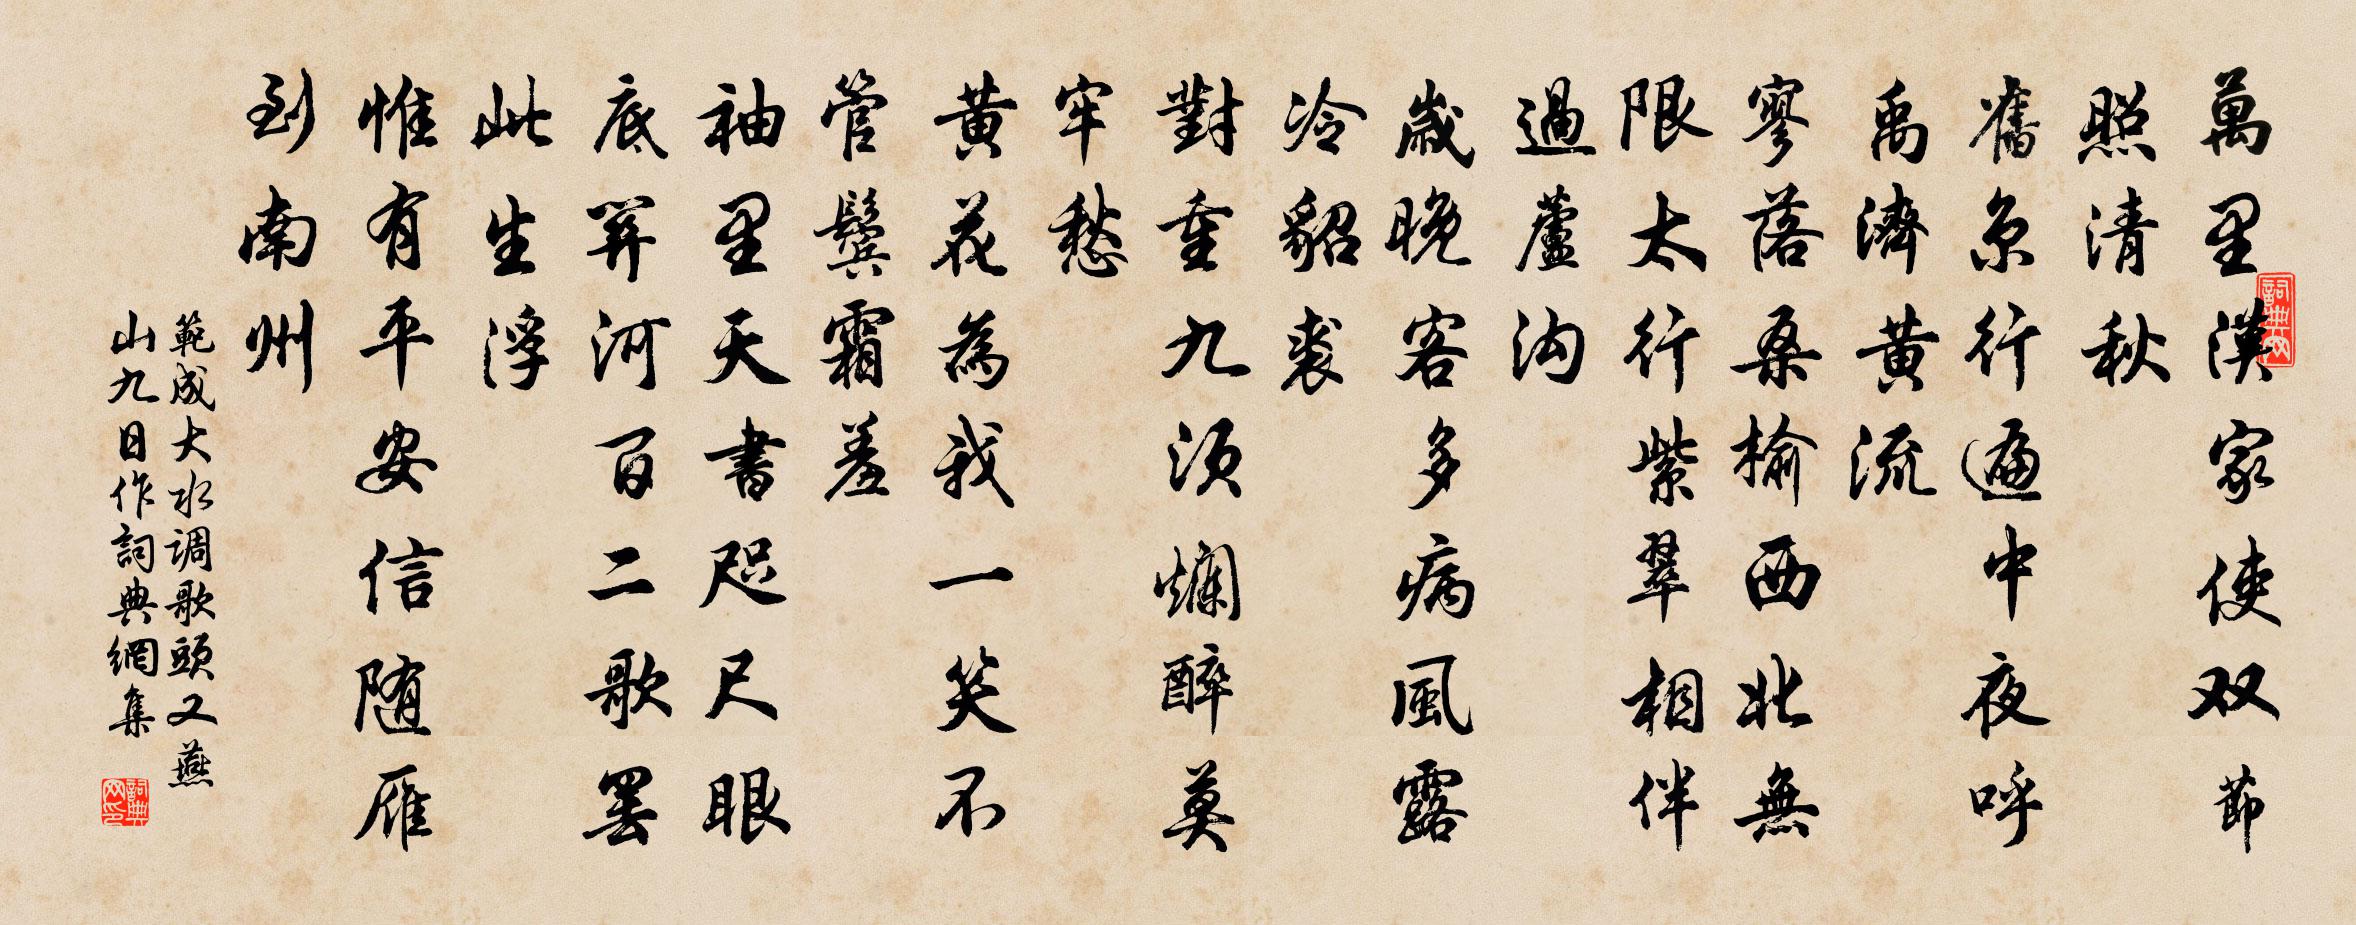 萬里漢家使双節
照清秋
舊京行遍中夜呼
禹濟黄流
寥落桑榆西北無
限太行紫翠相伴
過蘆沟
歲晚客多病風露
冷貂裘
對重九須爛醉莫
牢愁
黄花為我一笑不
管鬢霜羞
袖里天書咫尺眼
底關河百二歌罷
此生浮
惟有平安信随雁
到南州
範成大水调歌頭又燕
山九日作詞典網集
詞典网
詞典网印